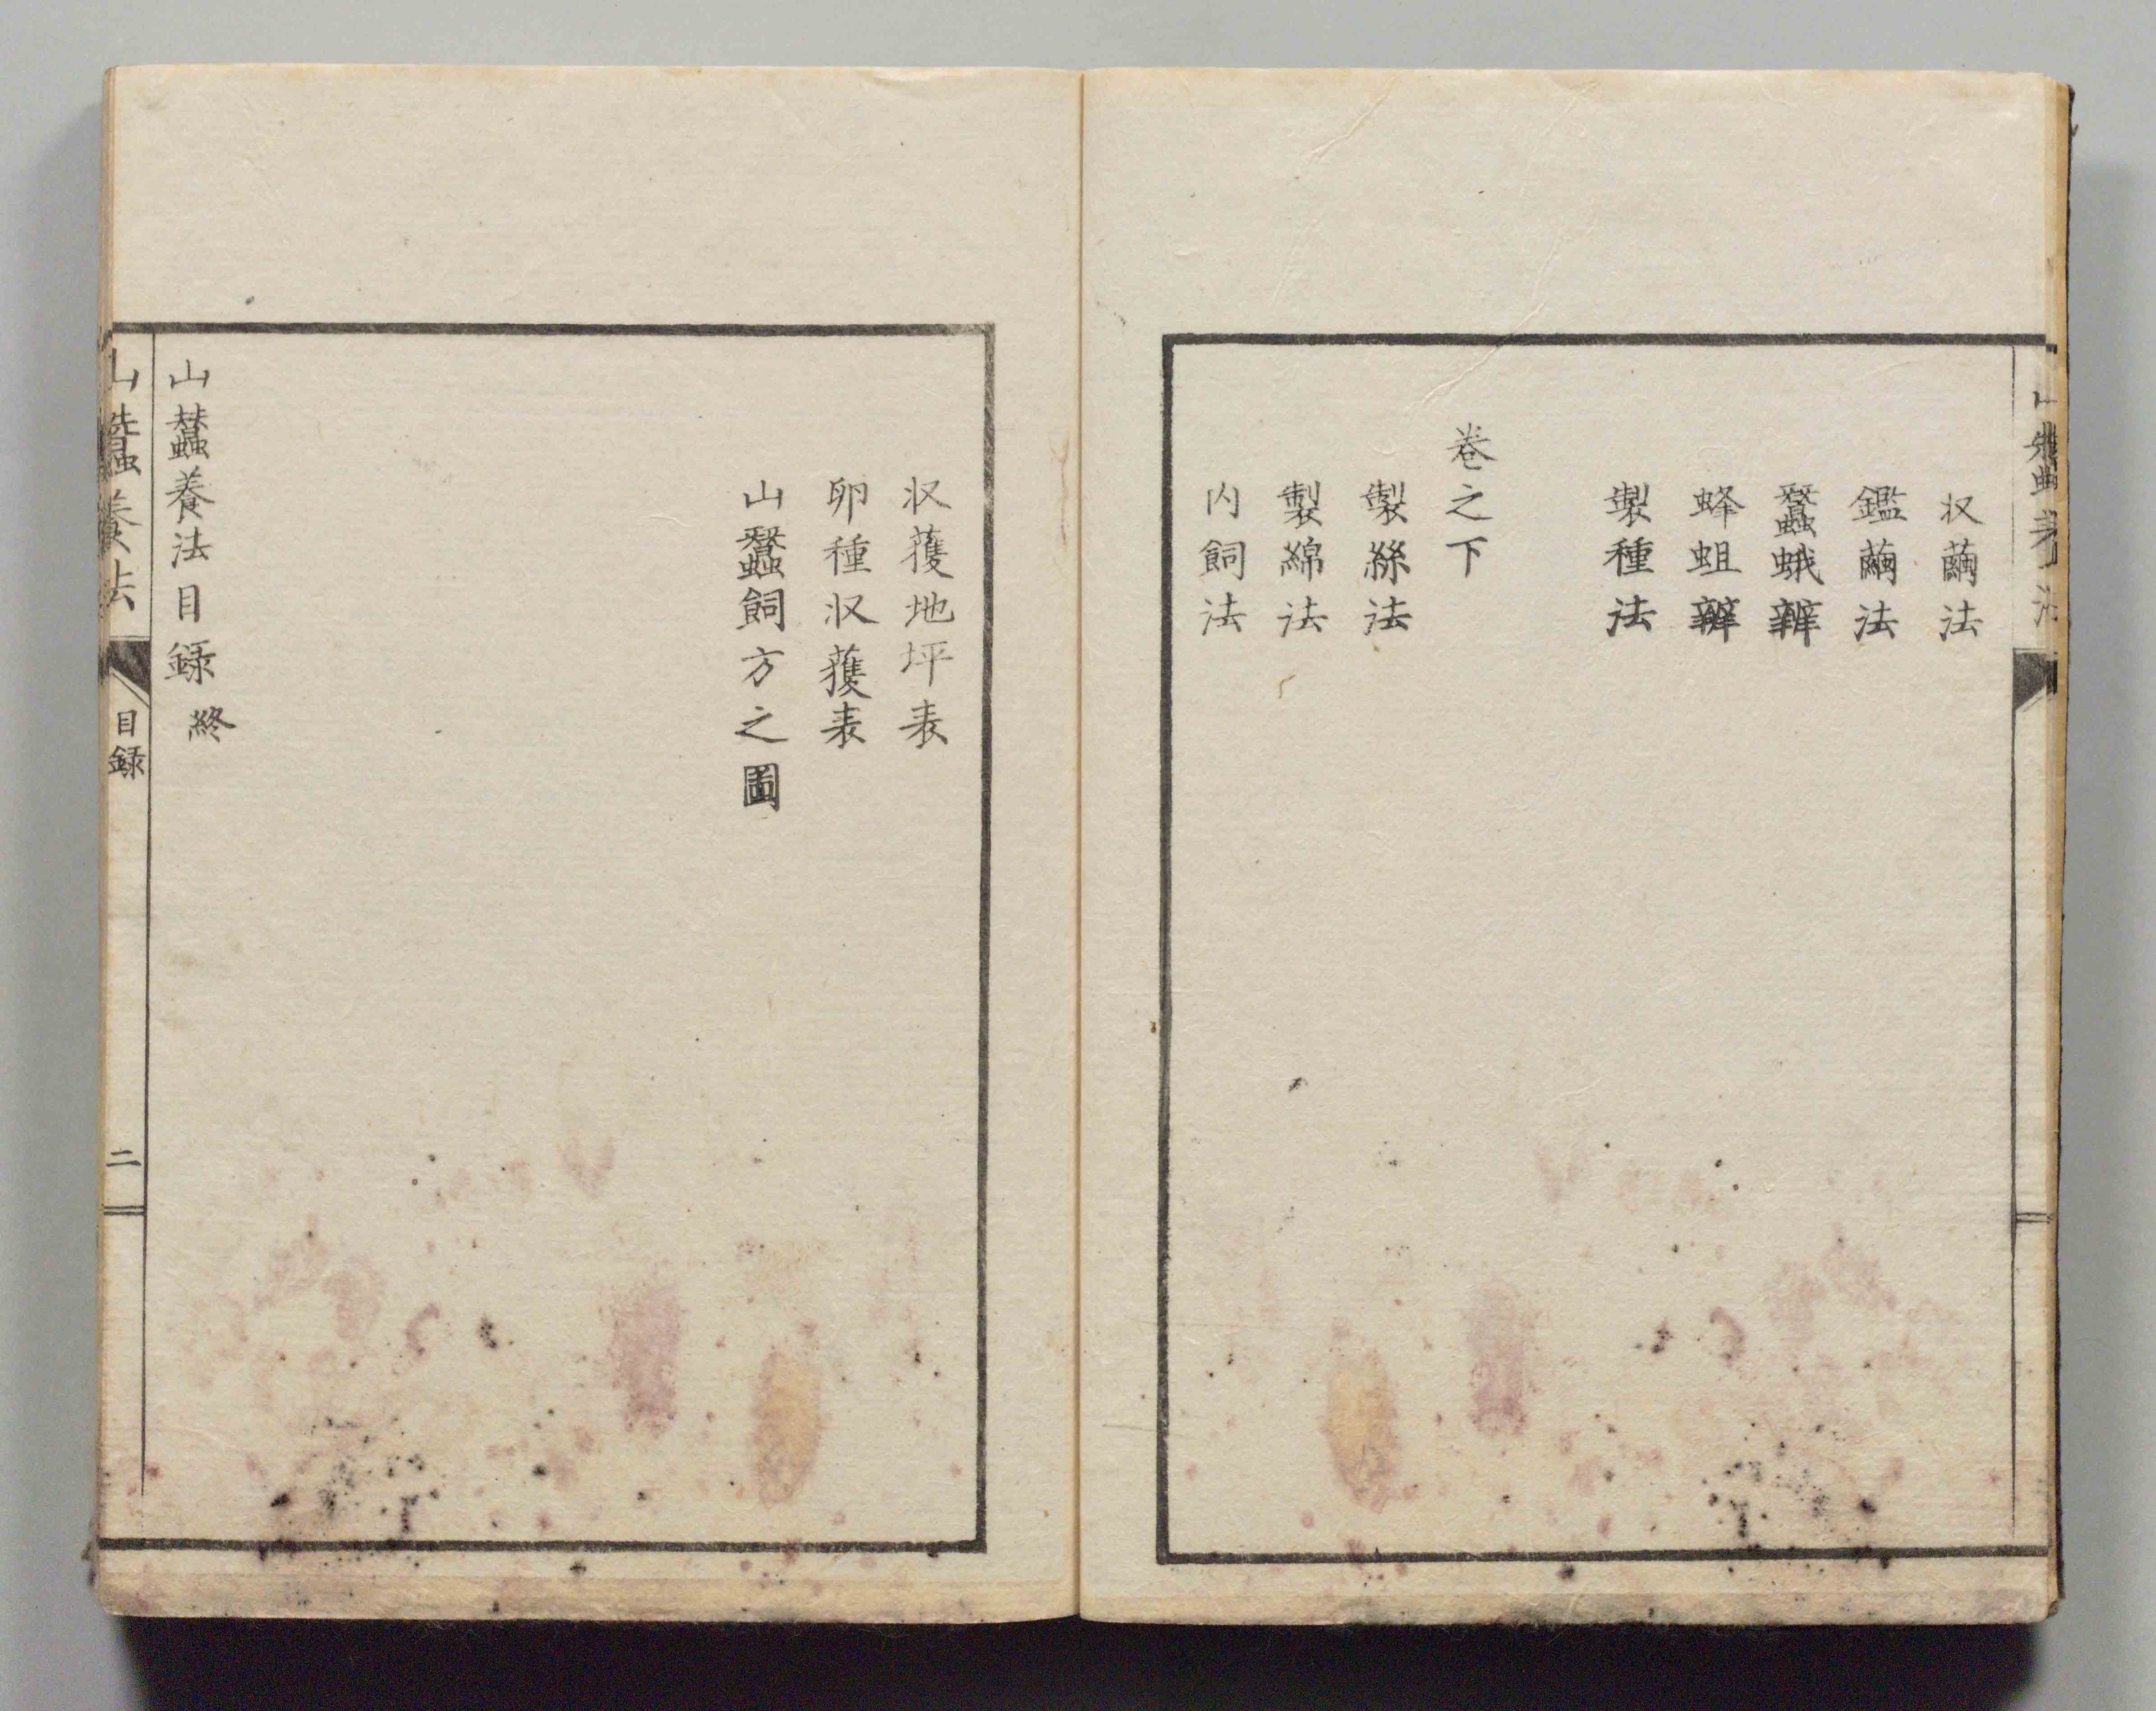 収繭法
鑑繭法
蠶蛾辨
蜂蛆辨
製種法
巻之下
製絲法
製綿法
内飼法
収獲地坪表
卵種収獲表
山蠶飼方之圖
山蠶養法目録終
山蠶養法
目録
二